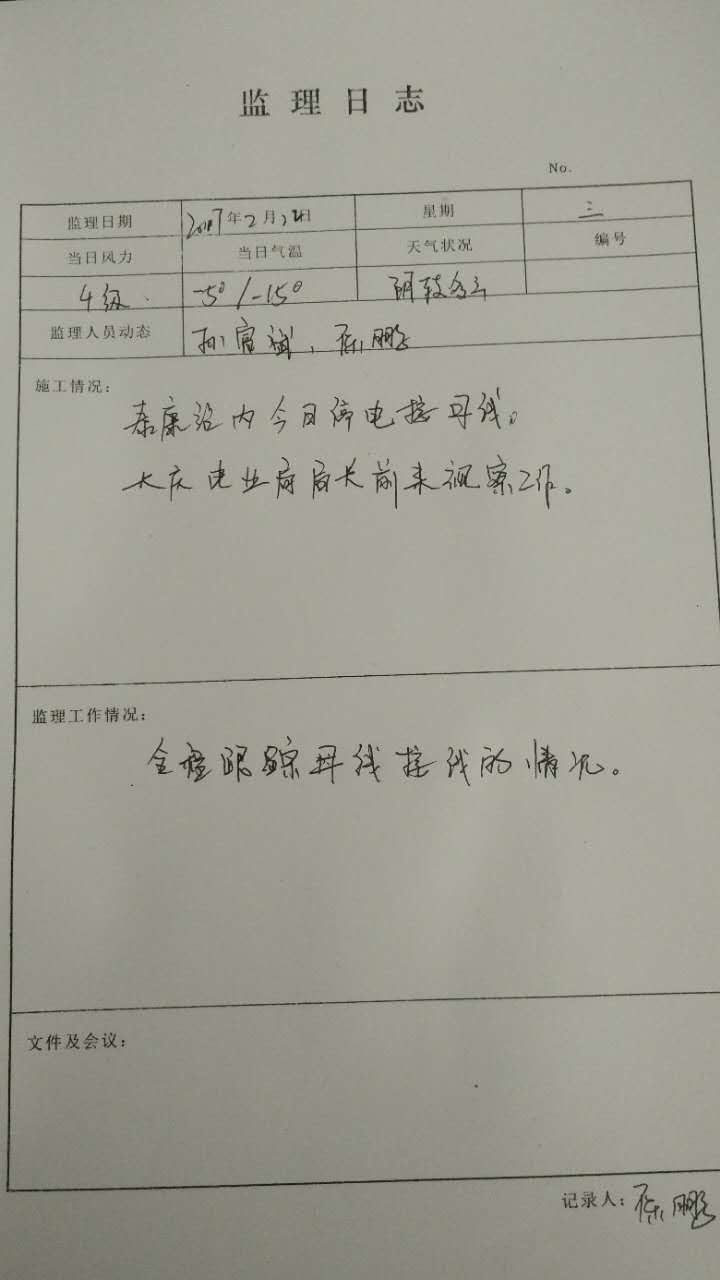 监理日志
No.
监理日期 2017年2月22日 星期 三
当日风力 当日气温 天气状况 编号
4级 -5°/-15° 阴转多云
监理人员动态 孙富斌、陈鹏
施工情况：
泰康站内今日停电接母线。
大庆电业局局长前来视察工作。
监理工作情况：
全程跟踪母线接线的情况。
文件及会议：
记录人：陈鹏